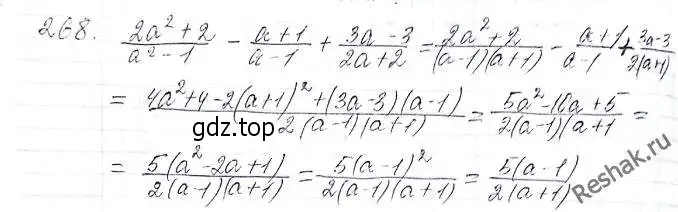 268. (2a² + 2)/(a² - 1) - (a + 1)/(a - 1) + (3a - 3)/(2a + 2) = (2a² + 2)/((a-1)(a+1)) - (a + 1)/(a - 1) + (3a-3)/(2(a+1))
= (4a² + 4 - 2(a+1)² + (3a-3)(a-1))/(2(a-1)(a+1)) = (5a² - 10a + 5)/(2(a-1)(a+1) =
gdz.top
= 5(a² - 2a + 1)/(2(a-1)(a+1)) = 5(a-1)²/(2(a-1)(a+1)) = 5(a-1)/(2(a+1))
Reshak.ru